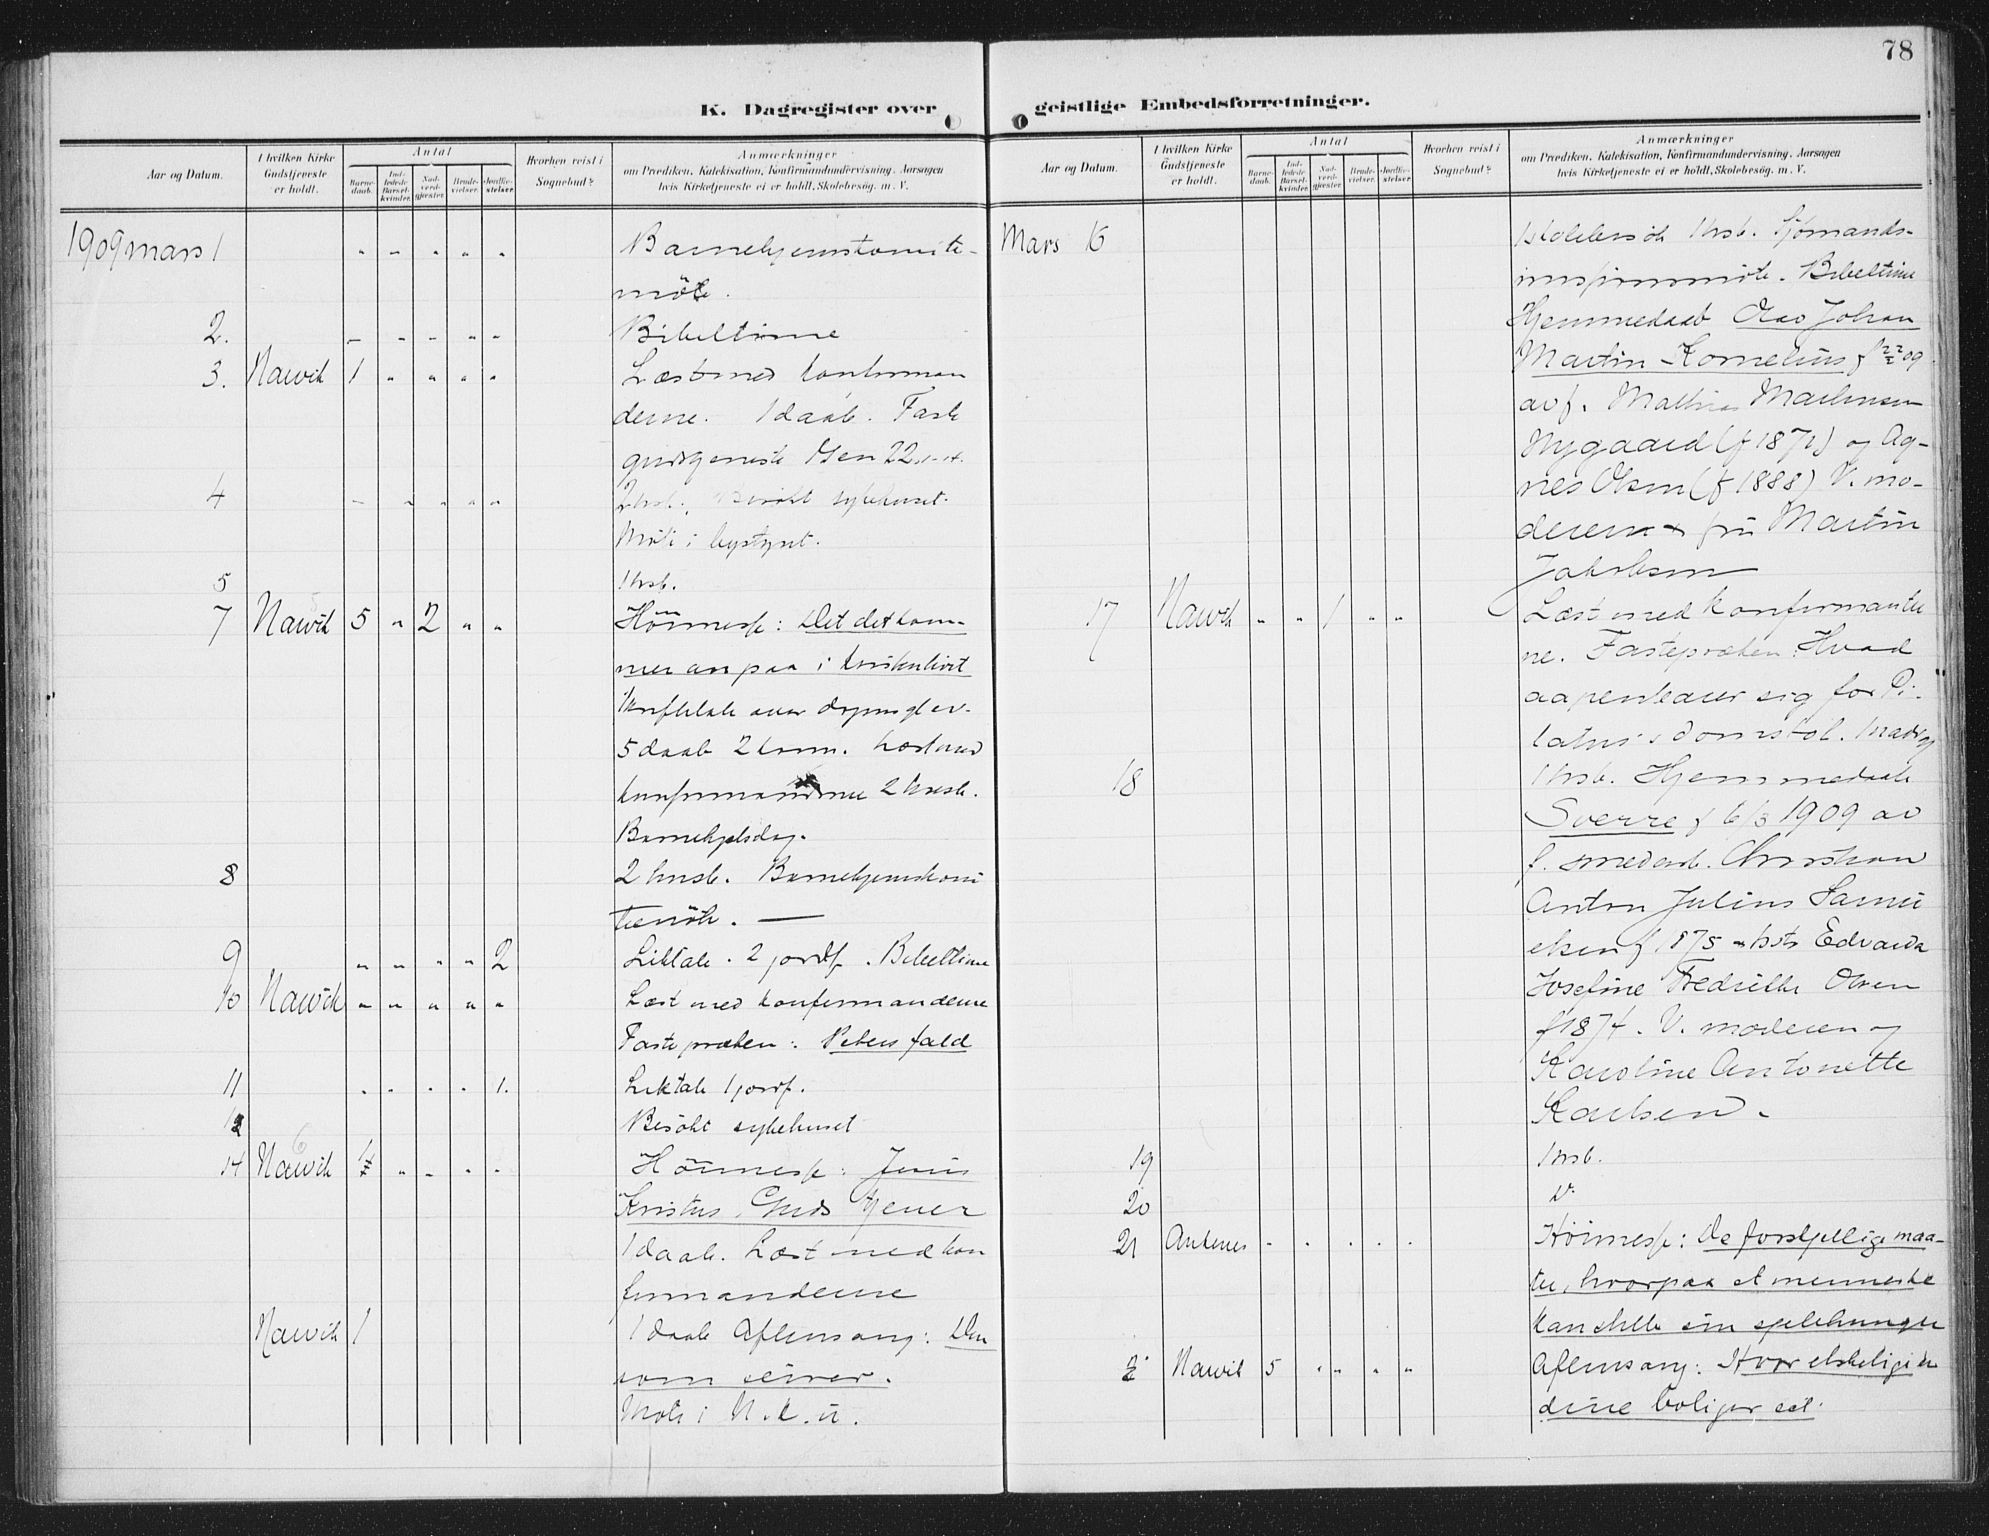 78
K. Dagregister over
geistlige Embedsforretninger.
Aar og Datum.
I hvilken Kirke Gudstjeneste er holdt.
Antal
Barnedaab.
Indledede Barselkvinder.
Nadverdgjester.
Brudevielser.
Jordfæstelser.
Hvorhen reist i Sognebud?
Anmærkninger
om Prædiken, Katekisation, Konfirmandundervisning, Aarsagen
hvis Kirketjeneste ei er holdt, Skolebesøg. m. V.
1909 mars 1 " " " " " Barnehjemskomite-
møte.
2. " " " " " Bibeltime
3. Narvik 1 " " " " Læst med konfirman
derne. 1 daab. Faste
gudstjeneste Gen 22
4 " " " " " 2 husb. Besøkt sykehuset.
Møte i bystyret.
5 1 husb.
7 Narvik 5 " 2 " " Höimesse: Det det kom-
mer an paa i kristenlivet
5 daab 2 kom. Læst med
konfirmanderne 2 husb.
Barnehjelpsdag.
8 2 husb. Barnehjemskomi
temöte. —
9 " " " " 2 Liktale. 2 jordf. Bibeltime
10 Narvik " " " " " Læst med konfirmanderne
Fastepræken: Peters fald
11 " " " " 1. Liktale 1 jordf.
12 Besökt sykehuset
14 Narvik 1 " " " " Höimesse: Jesus
Kristus, Guds tjener
1 daab. Læst med kon
firmanderne
Narvik 1 1 daab Aftensang: Den
som seirer.
Møte i N.k.u.
Aar og Datum.
I hvilken Kirke Gudstjeneste er holdt.
Antal
Barnedaab.
Indledede Barselkvinder.
Nadverdgjester.
Brudevielser.
Jordfæstelser.
Hvorhen reist i Sognebud?
Anmærkninger
om Prædiken, Katekisation, Konfirmandundervisning, Aarsagen
hvis Kirketjeneste ei er holdt, Skolebesøg. m. V.
Mars 16 1 skolebesök 1 husb. Sjömands-
Bibeltime
Hjemmedaab Olav Johan
Martin Kornelius f
av f. Mathias Martinsen
Nygaard (f 1871) og Ag-
nes Olsen (f 1888) V. mo-
deren fru Martin
Jakobsen
17 Narvik " " 1 " " Læst med konfirmante
ne. Fastepræken: Hvad
aapenbarer sig for Pi-
latus's domstol. 1 nadvg
18 1 husb. Hjemmedaab
Sverre f 6/3 1909 av
f. smedarb. Christian
Anton Julius Samu
elsen f 1875 Edvarda
Josefine Fredrikke Olsen
f 1874. V. moderen og
Karoline Antonette
Karlsen.
19 1 husb.
20
21 Ankenes " " " " " Höimesse: De forskjellige maa-
ter, hvorpaa et menneske
kan stille sin sjelehunger
Narvik 5 " " " " Aftensang: Hvor elskelige er
dine boliger